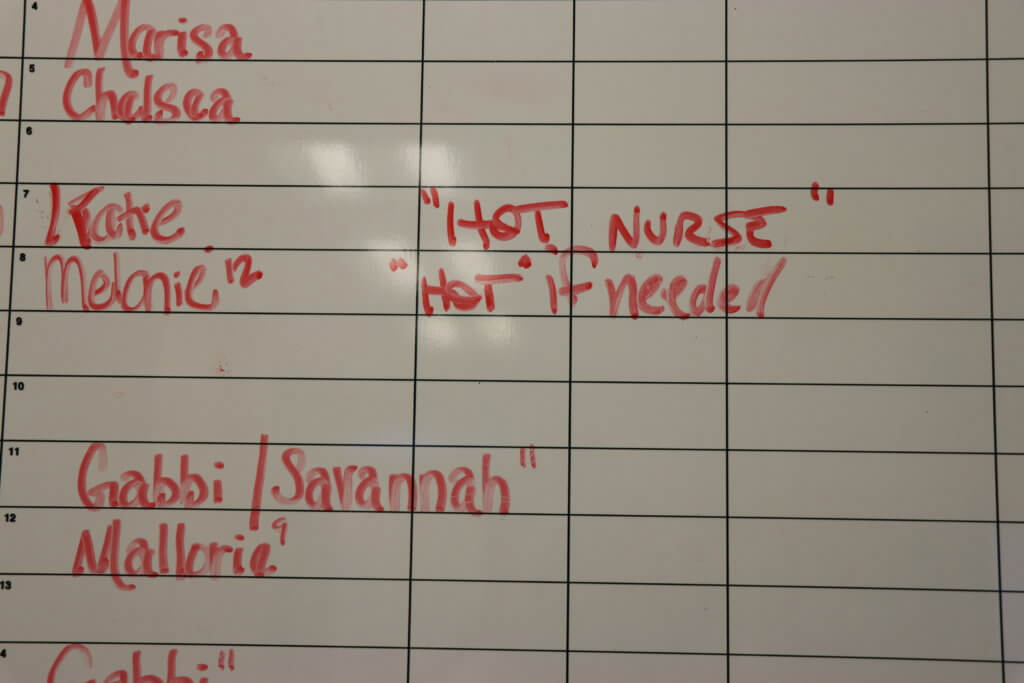 4 Marisa
5 Chelsea
6
7 Katie "HOT NURSE"
8 Melanie 12 "HOT" if needed
9
10
11 Gabbi / Savannah 11
12 Mallorie 9
13
4 Gabbi 11